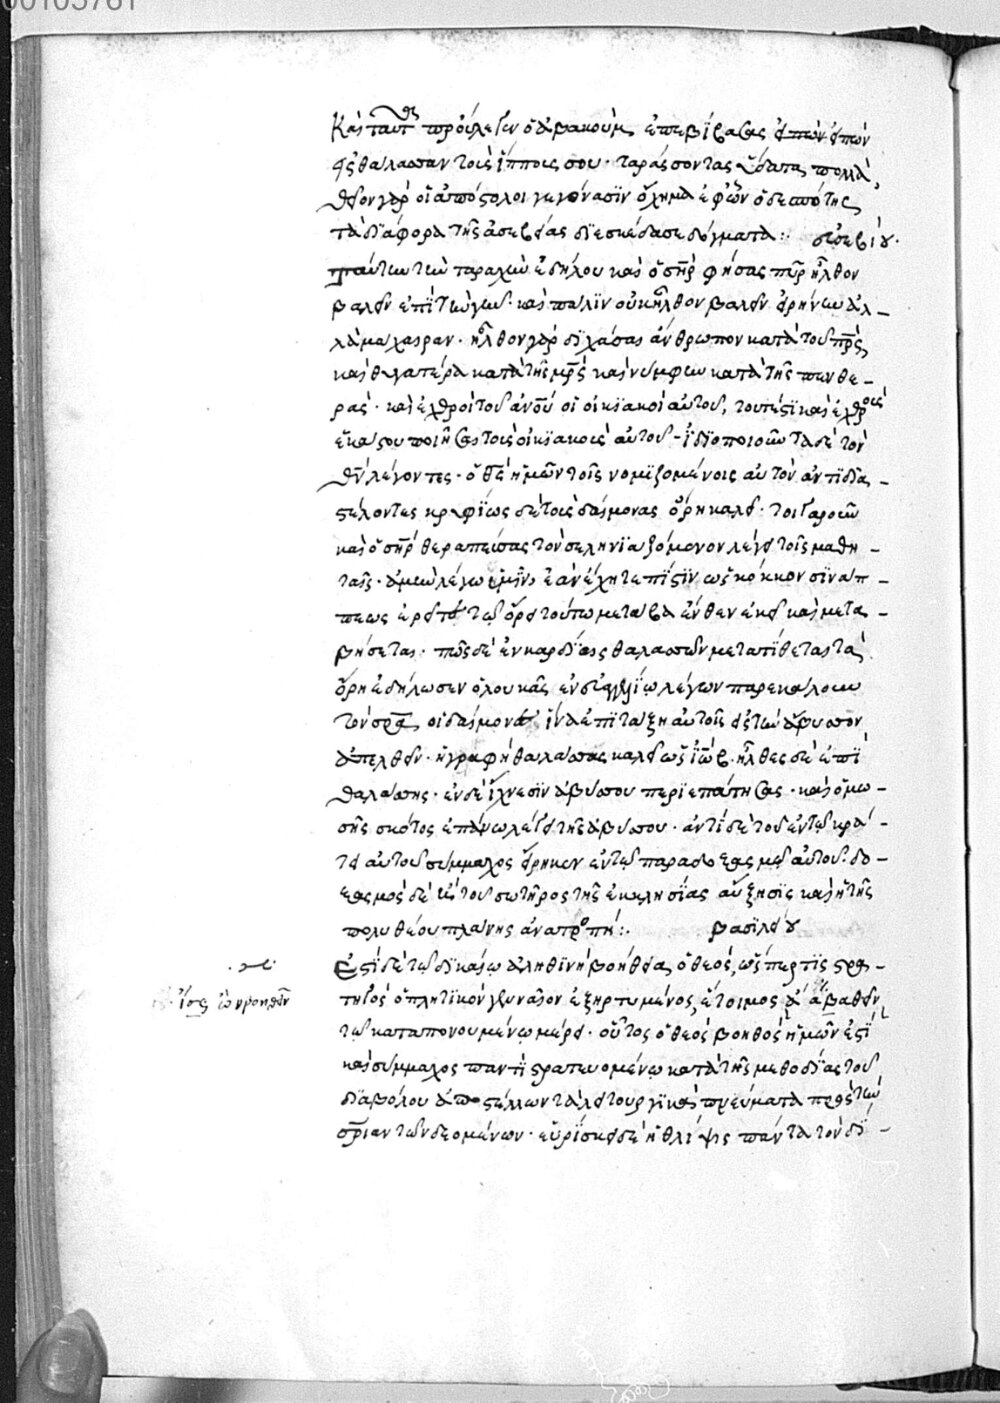 00105761
Καὶ ταύτην προέλεγεν ὁ ἀβακοὺμ ἐπεβίβασας
εἰς θάλασσαν τοὺς ἵππους σου· ταράσσοντας ὕδατα πολλὰ,
θεῖον γὰρ οἱ ἀπόστολοι γεγόνασϊν ὄχημα ἐφ' ὧν ὁ δεσπότης
τὰ διάφορα τῆς ἀσεβείας διεσκέδασε δόγματα:· εὐσεβίου·
τούτων τῶν ταραχῶν ἐδήλου καὶ ὁ σὴρ φήσας πῦρ ἦλθον
βαλεῖν ἐπὶ τὴν γῆν· καὶ πάλϊν οὐκ ἦλθον βαλεῖν εἰρήνην ἀλ-
λὰ μάχαιραν· ἦλθον γὰρ διχάσαι ἄνθρωπον κατὰ τοῦ πρς,
καὶ θυγατέρα κατὰ τῆς μρς καὶ νύμφην κατὰ τῆς πενθε-
ρᾶς· καὶ ἐχθροὶ τοῦ ἀνου οἱ οἰκιακοὶ αὐτοῦ, τουτέστι καὶ ἐχθροὺς
ἑκάστου ποιῆσαι τοὺς οἰκιακοὺς αὐτοῦ-
λέγοντες· ὁ θς ἡμῶν τοῖς νομϊζομένοις αὐτὸν
στέλοντες κρυφίως δὲ τοὺς δαίμονας ὄρη καλεῖ· τοιγαροῦν
καὶ ὁ σὴρ θεραπεύσας τὸν σεληνϊαζόμενον λέγει τοῖς μαθη-
ταῖς· ἀμὴν λέγω ὑμῖν, ἐὰν ἔχητε πίστϊν ὡς κόκκον σϊνάπ-
πεως ἐρεῖτε τῷ ὄρει τούτῳ μετάβα ἔνθεν ἐκεῖ καὶ μετα-
βήσεται· πῶς δὲ ἐν καρδίαις θαλασσῶν μετατίθεται τὰ
ὄρη ἐδήλωσεν ὁ λουκᾶς ἐν εὐαγγελίῳ λέγων παρεκάλουν
τὸν σρα οἱ δαίμονες ἵνα ἐπιτάξη αὐτοῖς εἰς τὴν ἄβυσσον
ἀπελθεῖν· ἡ γραφὴ θαλάσσας καλεῖ ὡς ἰώβ· ἦλθες δὲ ἐπὶ
θαλάσσης· ἐν δὲ ἴχνεσϊν ἀβύσσου περιεπάτησας· καὶ ὁ μω-
σῆς σκότος ἐπάνω λέγει τῆς ἀβύσσου· ἀντὶ δὲ τοῦ ἐν τῷ κρά-
τει αὐτοῦ σύμμαχος εἴρηκεν ἐν τῷ παράσχεθαι μετ' αὐτοῦ·
δὲ τοῦ σωτῆρος τῆς ἐκκλησίας αὔξησϊς καὶ ἡ τῆς
πολυθέου πλάνης ἀνατροπή:· βασϊλείου
Ἐστὶ δὲ τῷ δικαίῳ ἀληθϊνὴ βοήθεια ὁ θεός, ὥσπερ τϊς στρα-
τηγὸς ὁπλητϊκὸν γενναῖον ἐξηρτυμένος, ἕτοιμος
τῷ καταπονουμένῳ μέρει· οὗτος ὁ θεὸς βοηθὸς ἡμῶν ἐστὶ
καὶ σύμμαχος παντὶ στρατευομένῳ κατὰ τῆς μεθοδίας τοῦ
διαβόλου ἀποστέλλων τὰ λειτουργϊκὰ πνεύματα πρὸς τὴν
σριαν τῶν δεομένων· εὑρίσκει δὲ ἡ θλίψις πάντα τὸν δί-